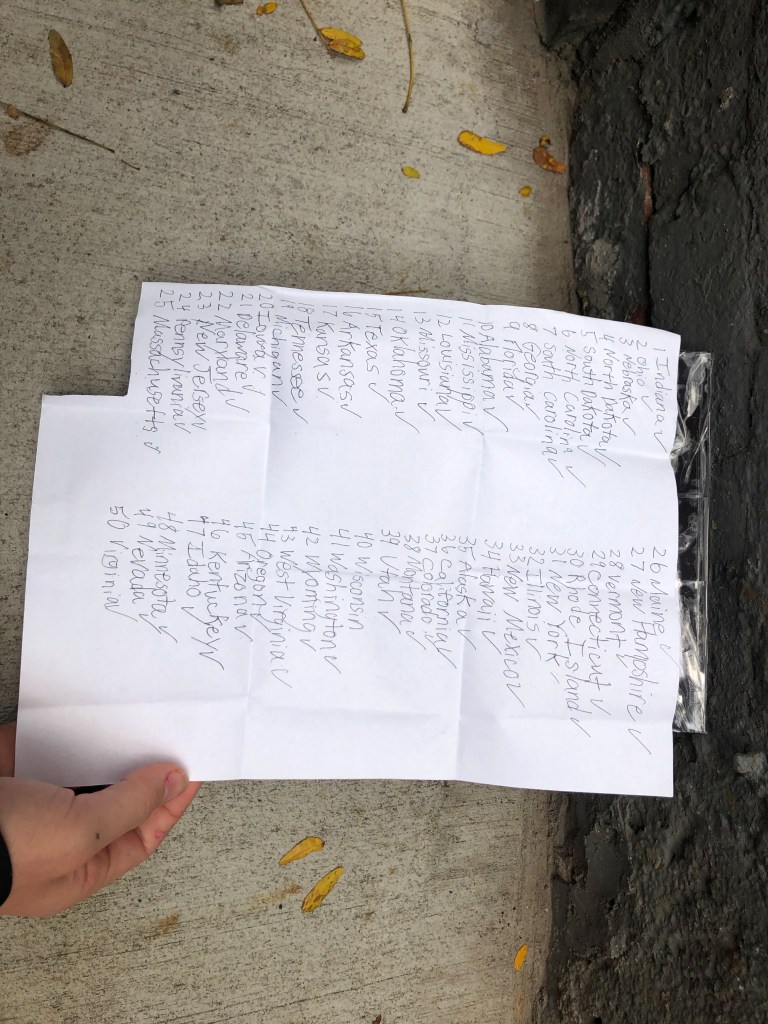 Indiana ✓
2 Ohio ✓
3 Nebraska ✓
4 North Dakota ✓
5 South Dakota ✓
6 North Carolina ✓
7 South Carolina ✓
8 Georgia ✓
9 Florida ✓
10 Alabama ✓
11 Mississippi ✓
12 Louisiana ✓
13 Missouri ✓
14 Oklahoma ✓
15 Texas ✓
16 Arkansas ✓
17 Kansas ✓
18 Tennessee ✓
19 Michigan ✓
20 Iowa ✓
21 Delaware ✓
22 Maryland ✓
23 New Jersey ✓
24 Pennsylvania ✓
25 Massachusetts ✓
26 Maine ✓
27 New Hampshire ✓
28 Vermont ✓
29 Connecticut ✓
30 Rhode Island ✓
31 New York ✓
32 Illinois ✓
33 New Mexico ✓
34 Hawaii ✓
35 Alaska ✓
36 California ✓
37 Colorado ✓
38 Montana ✓
39 Utah ✓
40 Wisconsin
41 Washington ✓
42 Wyoming ✓
43 West Virginia ✓
44 Oregon ✓
45 Arizona ✓
46 Kentuckey ✓
47 Idaho ✓
48 Minnesota ✓
49 Nevada ✓
50 Virginia ✓